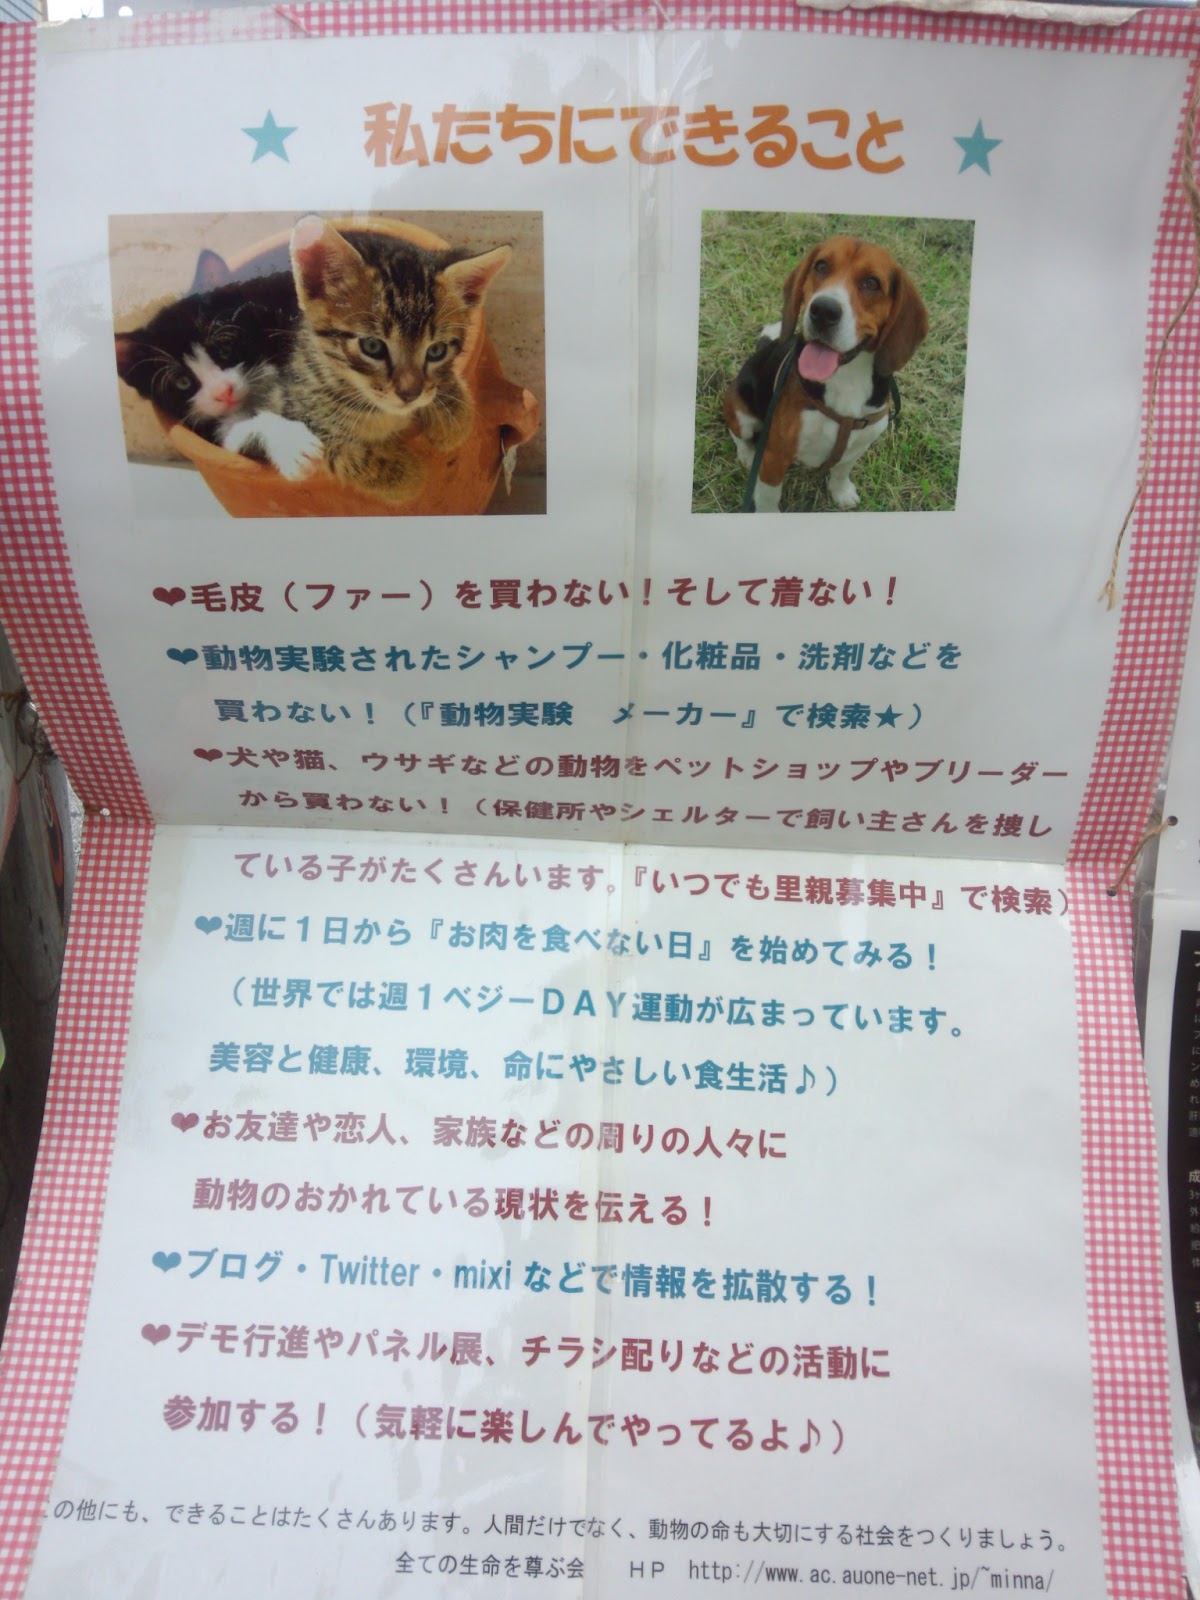 ★ 私たちにできること ★
❤毛皮（ファー）を買わない！そして着ない！
❤動物実験されたシャンプー・化粧品・洗剤などを
買わない！（『動物実験　メーカー』で検索★）
❤犬や猫、ウサギなどの動物をペットショップやブリーダー
から買わない！（保健所やシェルターで飼い主さんを捜し
ている子がたくさんいます。『いつでも里親募集中』で検索）
❤週に１日から『お肉を食べない日』を始めてみる！
（世界では週１ベジーＤＡＹ運動が広まっています。
美容と健康、環境、命にやさしい食生活♪）
❤お友達や恋人、家族などの周りの人々に
動物のおかれている現状を伝える！
❤ブログ・Twitter・mixiなどで情報を拡散する！
❤デモ行進やパネル展、チラシ配りなどの活動に
参加する！（気軽に楽しんでやってるよ♪）
この他にも、できることはたくさんあります。人間だけでなく、動物の命も大切にする社会をつくりましょう。
全ての生命を尊ぶ会　ＨＰ　http://www.ac.auone-net.jp/~minna/